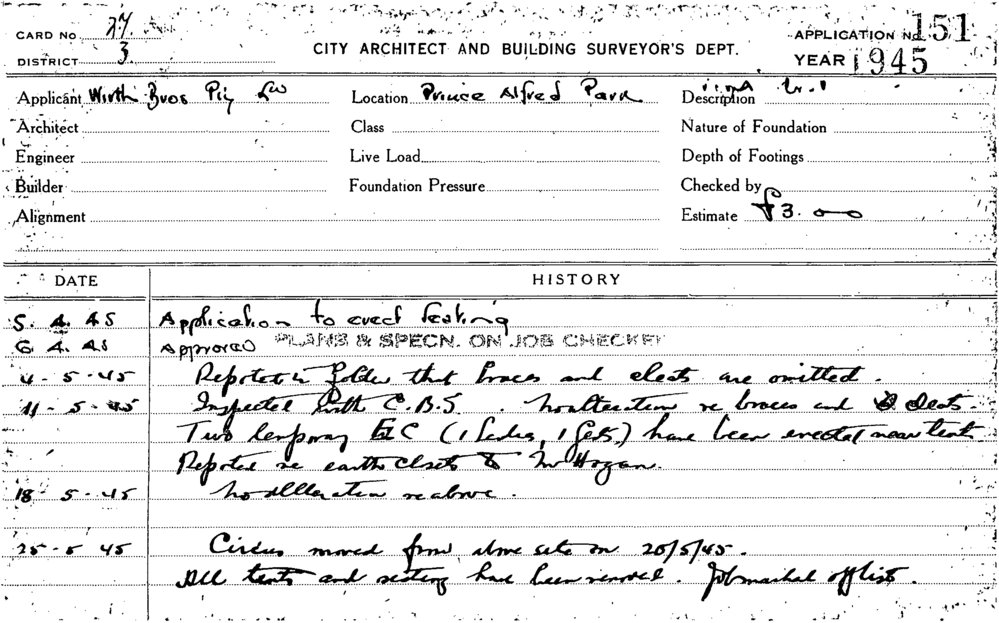 CARD No 27
DISTRICT 3
CITY ARCHITECT AND BUILDING SURVEYOR'S DEPT.
APPLICATION No 151
YEAR 1945
Applicant Wirth Bros Pty Ltd Location Prince Alfred Park Description
Architect Class Nature of Foundation
Engineer Live Load Depth of Footings
Builder Foundation Pressure Checked by
Alignment Estimate £3.
DATE HISTORY
5. 4. 45 Application to erect seating
6 4. 45 Approved PLANS & SPECN. ON JOB CHECKED
4-5-45 Reported in folder that braces and cleats are omitted.
11-5-45 Inspected with C.B.S. no alteration re braces and cleats.
Two temporary E C (1 Ladies, 1 Gets.) have been erected near tent
Reported re earth closets to Mr Hogan.
18-5-45 No alteration re above.
25-5 45 Circus moved from above site on 20/5/45.
All tents and seating have been removed. Job marked off list.